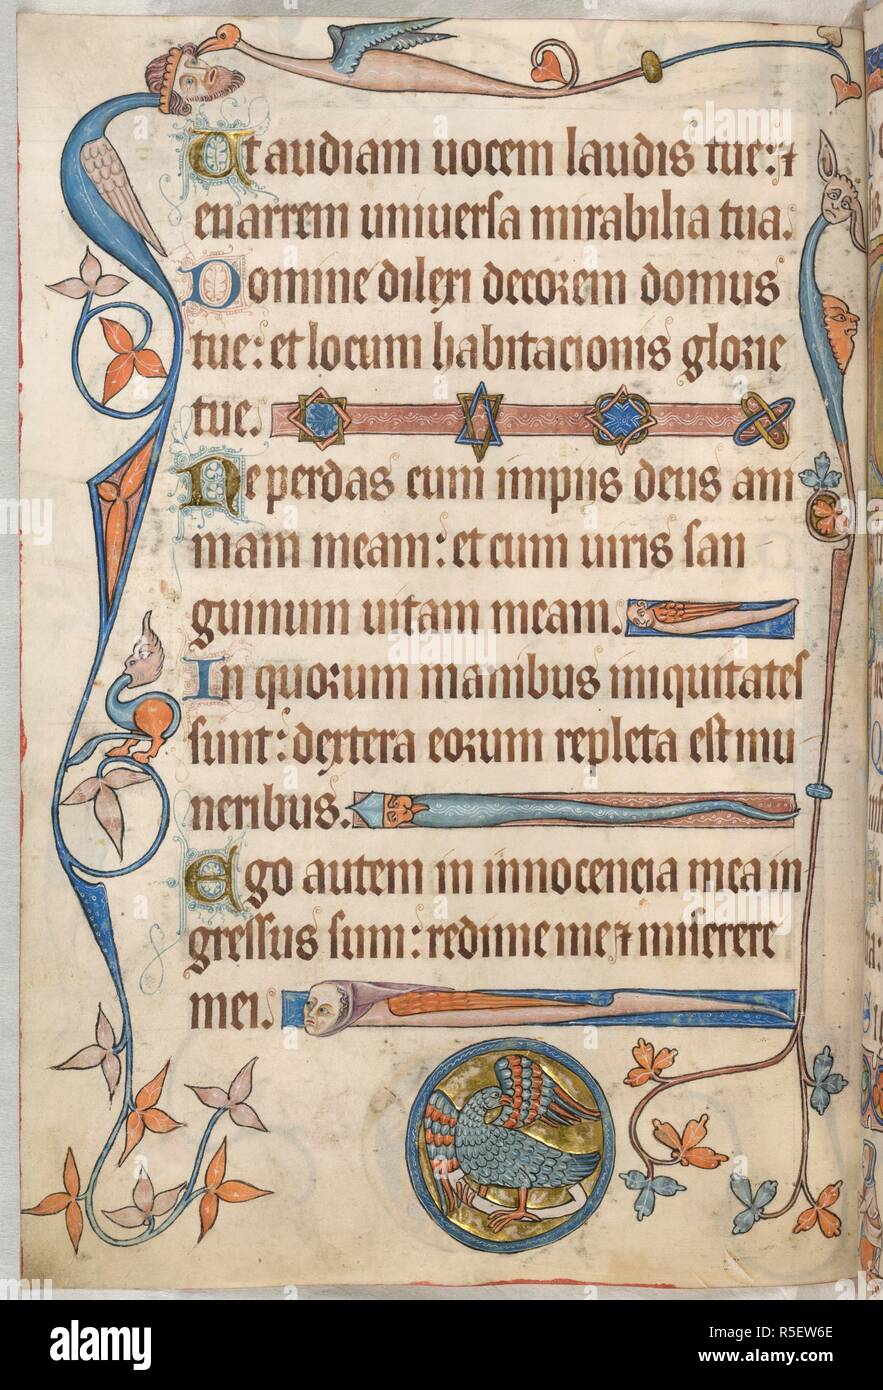 Ut audiam uocem laudis tue: ⁊
enarrem uniuersa mirabilia tua.
Domine dilexi decorem domus
tue: et locum habitacionis glorie
tue.
Ne perdas cum impiis deus ani
mam meam: et cum uiris san
guinum uitam meam.
In quorum manibus iniquitates
sunt: dextera eorum repleta est mu
neribus.
Ego autem in innocencia mea in
gressus sum: redime me ⁊ miserere
mei.
alamy
Image ID: R5EW6E
www.alamy.com